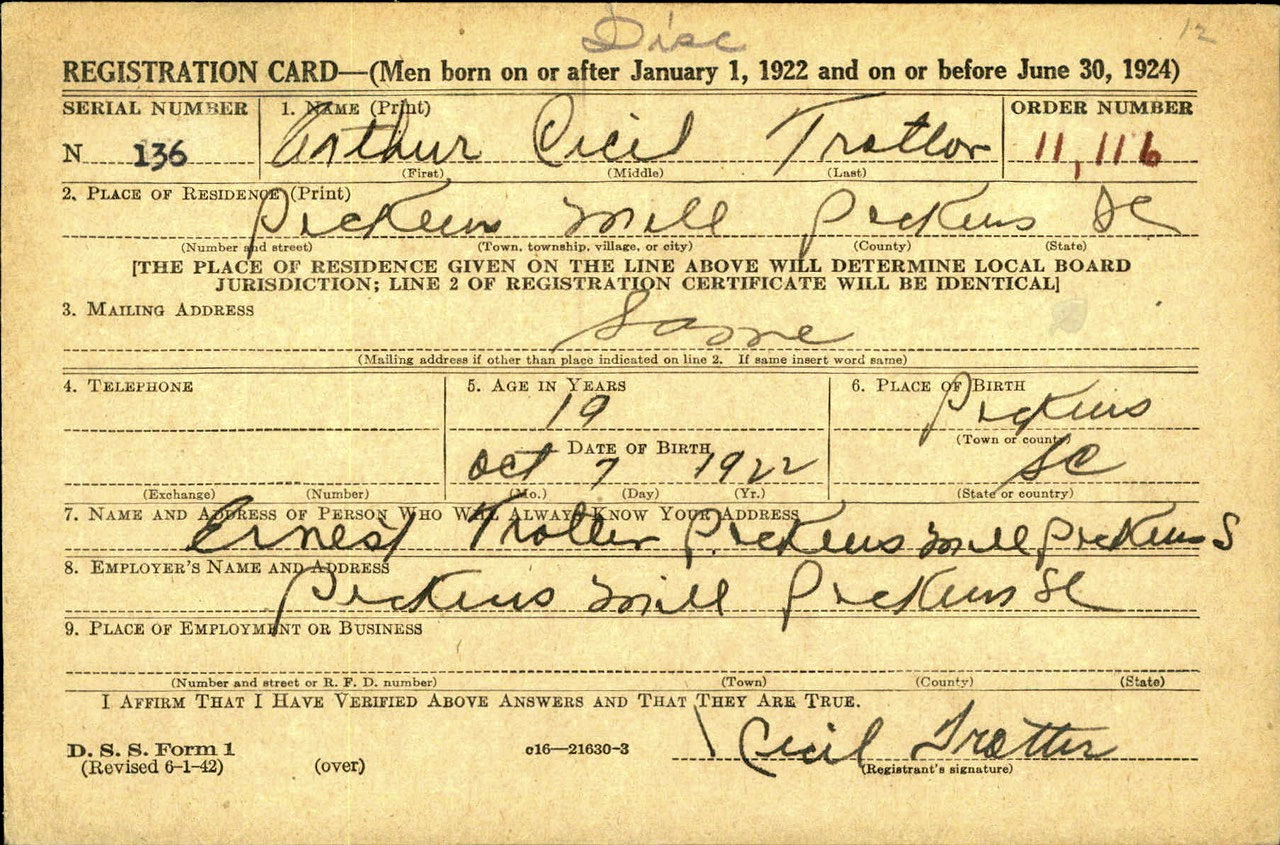 Disc 12
REGISTRATION CARD—(Men born on or after January 1, 1922 and on or before June 30, 1924)
SERIAL NUMBER 1. NAME (Print) ORDER NUMBER
N 136 Arthur Cecil Trotter 11,116
(First) (Middle) (Last)
2. PLACE OF RESIDENCE (Print)
Pickens Mill Pickens SC
(Number and street) (Town, township, village, or city) (County) (State)
[THE PLACE OF RESIDENCE GIVEN ON THE LINE ABOVE WILL DETERMINE LOCAL BOARD
JURISDICTION; LINE 2 OF REGISTRATION CERTIFICATE WILL BE IDENTICAL]
3. MAILING ADDRESS
Same
(Mailing address if other than place indicated on line 2. If same insert word same)
4. TELEPHONE 5. AGE IN YEARS 6. PLACE OF BIRTH
19 Pickens
DATE OF BIRTH (Town or county)
Oct 7 1922 SC
(Exchange) (Number) (Mo.) (Day) (Yr.) (State or country)
7. NAME AND ADDRESS OF PERSON WHO WILL ALWAYS KNOW YOUR ADDRESS
Ernest Trotter Pickens Mill Pickens S
8. EMPLOYER'S NAME AND ADDRESS
Pickens Mill Pickens SC
9. PLACE OF EMPLOYMENT OR BUSINESS
(Number and street or R. F. D. number) (Town) (County) (State)
I AFFIRM THAT I HAVE VERIFIED ABOVE ANSWERS AND THAT THEY ARE TRUE.
Cecil Trotter
D. S. S. Form 1 c16—21630-3
(Revised 6-1-42) (over) (Registrant's signature)